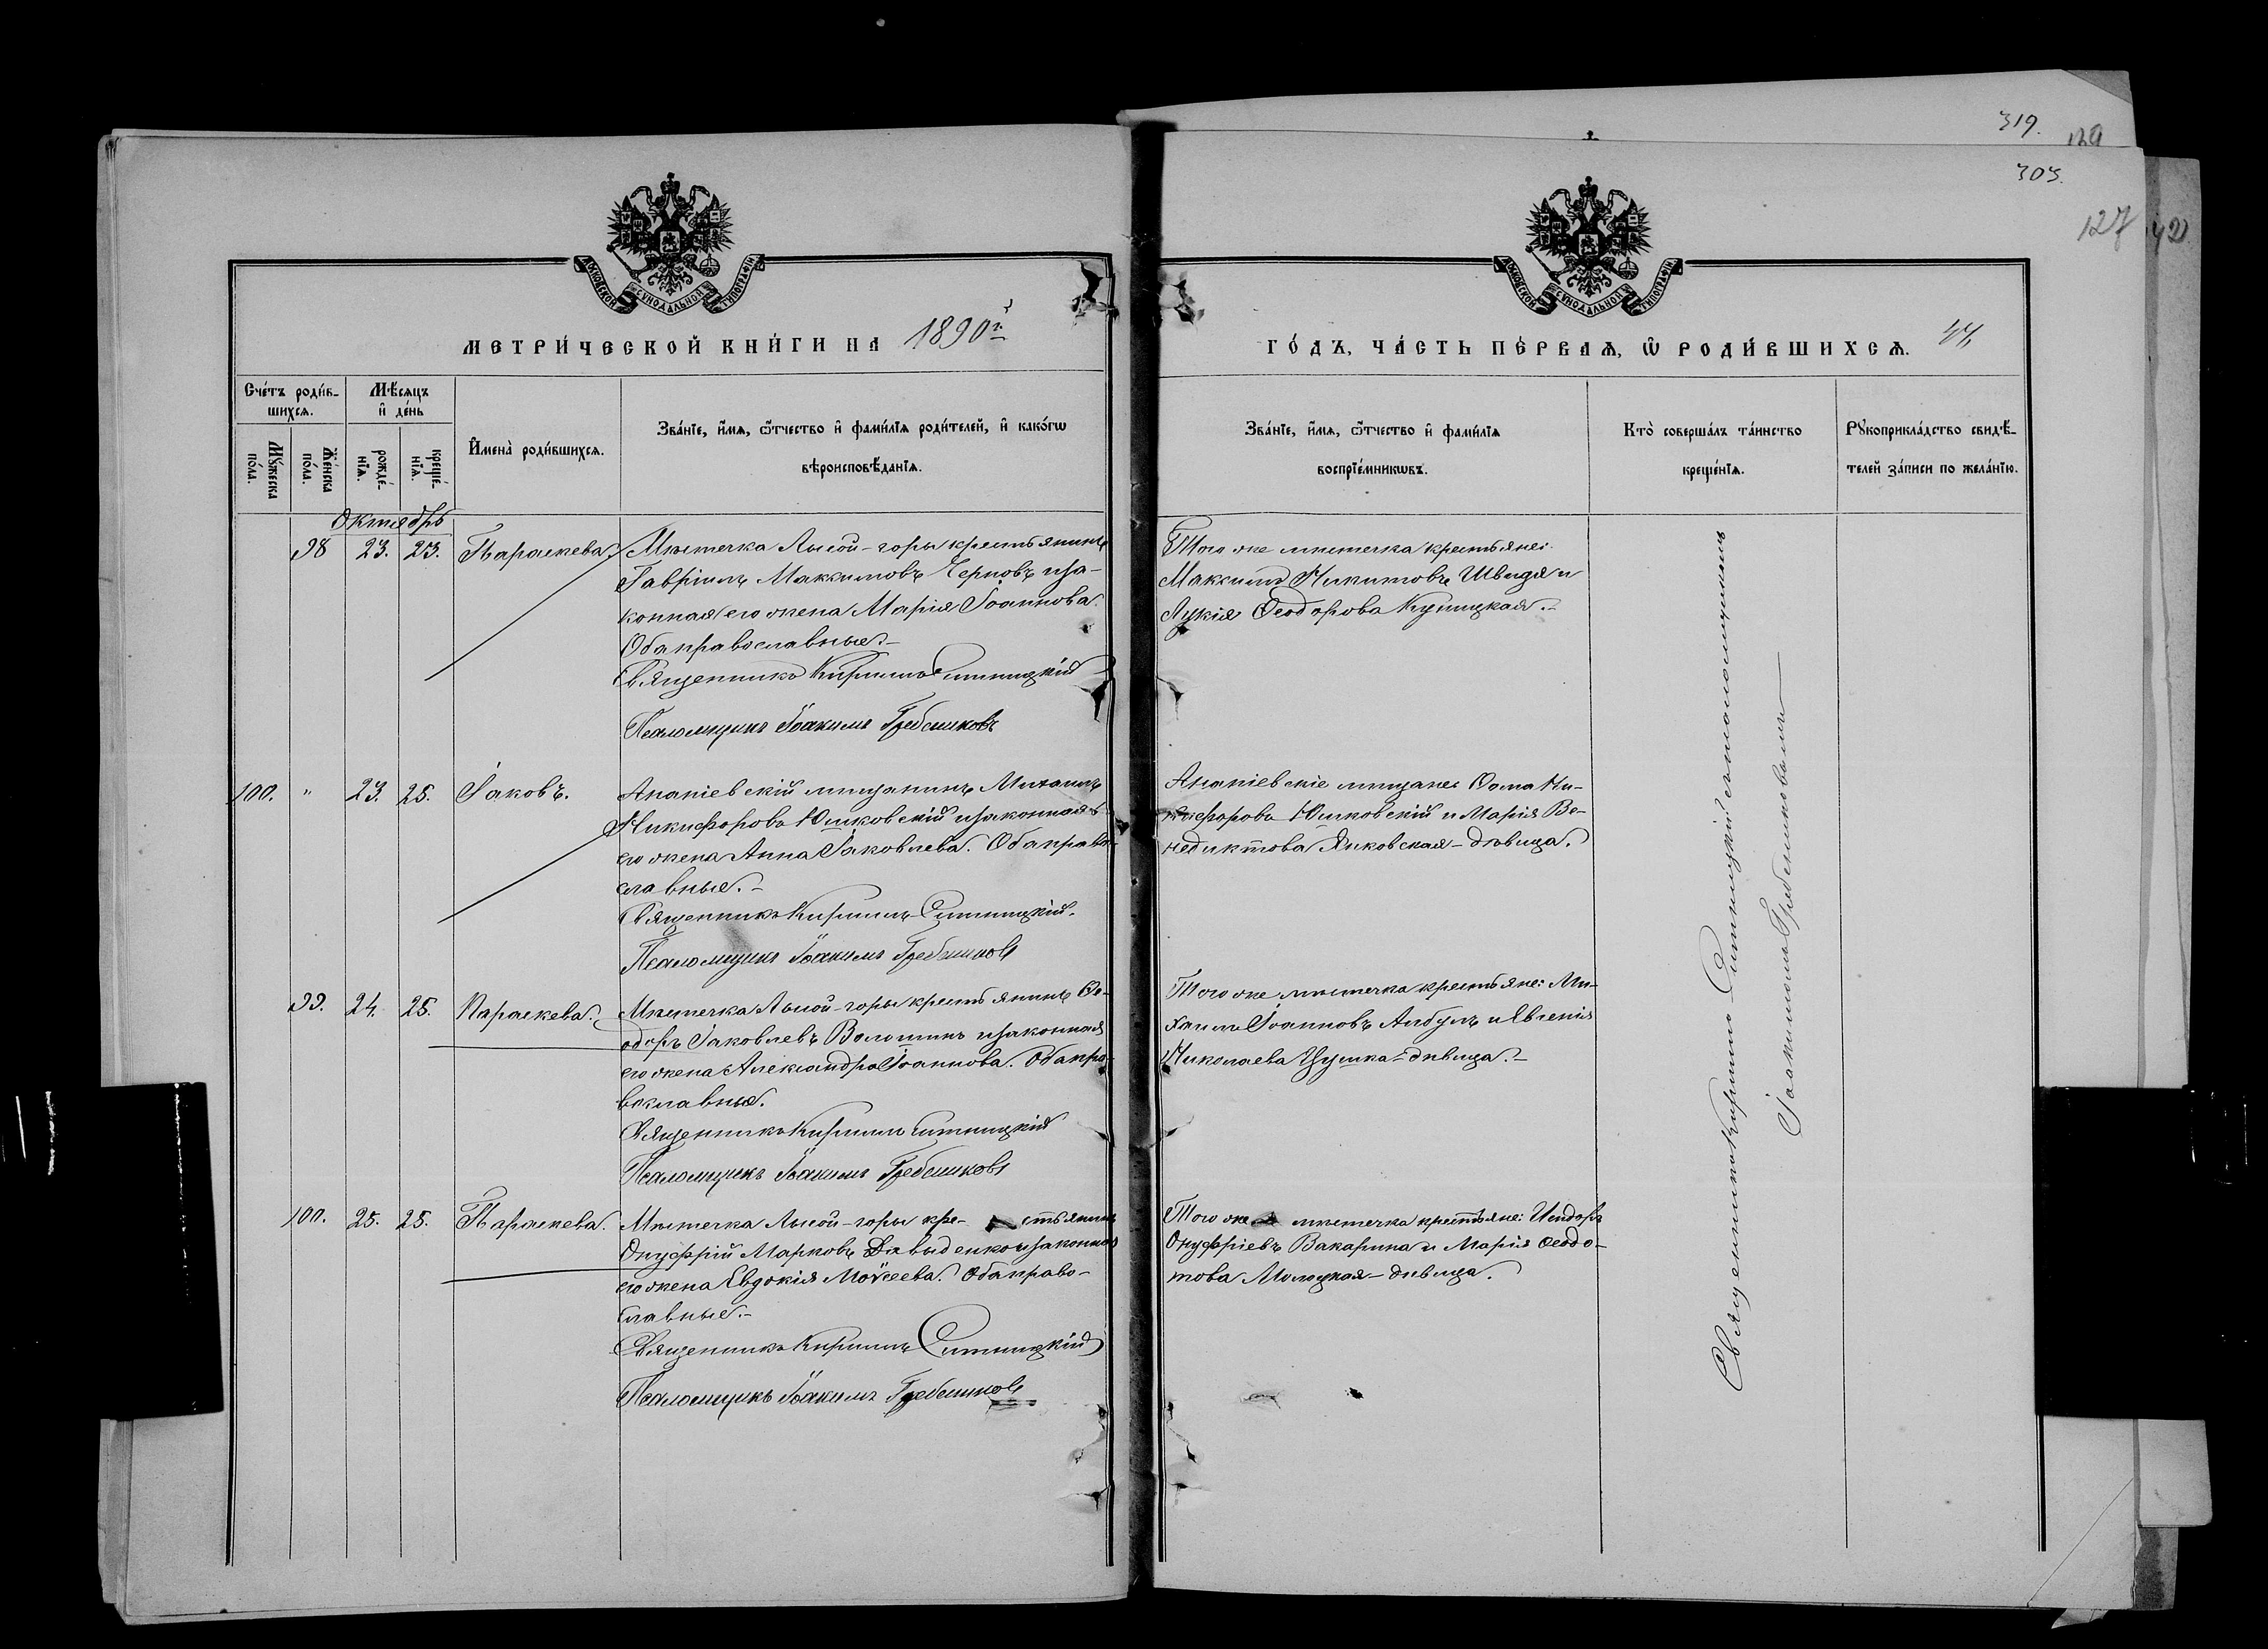 319.
129
303.
127
МОСКОВСКОЙ СѴНОДАЛЬНОЙ ТИПОГРАФІИ
МОСКОВСКОЙ СѴНОДАЛЬНОЙ ТИПОГРАФІИ
МЕТРИ́ЧЕСКОЙ КНИ́ГИ НА 1890й
ГО́ДЪ, ЧА́СТЬ ПЕ́РВАѦ, Ѽ РОДИ́ВШИХСѦ. 44
Сче́тъ роди́в-
шихсѧ.
Мѣ́сѧцъ
и҆ де́нь
Мꙋ́жеска
по́ла.
Же́нска
по́ла.
рожде́-
нїѧ.
креще́-
нїѧ.
И҆мена̀ роди́вшихсѧ.
Зва́нїе, и҆́мѧ, ѻ҆́тчество и҆ фами́лїѧ роди́телей, и҆ како́гѡ
вѣроисповѣ́данїѧ.
Зва́нїе, и҆́мѧ, ѻ҆́тчество и҆ фами́лїѧ
воспрїе́мникѡвъ.
Кто̀ соверша́лъ та́инство
креще́нїѧ.
Рꙋкоприкла́дство свидѣ́-
телей за́писи по жела́нїю.
Октябрь
98 23. 23. Параскева.
Мѣстечка Лысой-горы крестьянинъ
Гавріилъ Максимовъ Черновъ и за-
конная его жена Марія Іоаннова.
Оба православные.-
Священникъ Кириллъ Ситницкій
Псаломщикъ Іоакимъ Гребенниковъ
Того же мѣстечка крестьяне:
Максимъ Никитовъ Швидя и
Лукія Ѳеодорова Куницкая.-
100. " 23. 25. Іаковъ.
Ананіевскій мѣщанинъ Михаилъ
Никифоровъ Юшковскій и законная
его жена Анна Іаковлева. Оба право-
славные.-
Священникъ Кириллъ Ситницкій.
Псаломщикъ Іоакимъ Гребенниковъ
Ананіевскіе мѣщане: Ѳома Ни-
кифоровъ Юшковскій и Марія Ве-
недиктова Янковская - дѣвица.
99. 24. 25. Параскева.
Мѣстечка Лысой-горы крестьянинъ Ѳе-
одоръ Іаковлевъ Волошинъ и законная
его жена Александра Іоаннова. Оба пра-
вославные.
Священникъ Кириллъ Ситницкій
Псаломщикъ Іоакимъ Гребенниковъ
Того же мѣстечка крестьяне: Ми-
хаилъ Іоанновъ Албулъ и Евгенія
Николаева Цушка - дѣвица.-
100. 25. 25. Параскева.
Мѣстечка Лысой-горы кре- стьянинъ
Онуфрій Марковъ Давыденко и законная
его жена Евдокія Моѵсеева. Оба право-
славные.-
Священникъ Кириллъ Ситницкій
Псаломщикъ Іоакимъ Гребенниковъ
Того же мѣстечка крестьяне: Исидоръ
Онуфріевъ Вакарина и Марія Ѳеодо-
това Молоцкая - дѣвица.
Священникъ Кириллъ Ситницкій съ псаломщикомъ
Іоакимомъ Гребенниковымъ